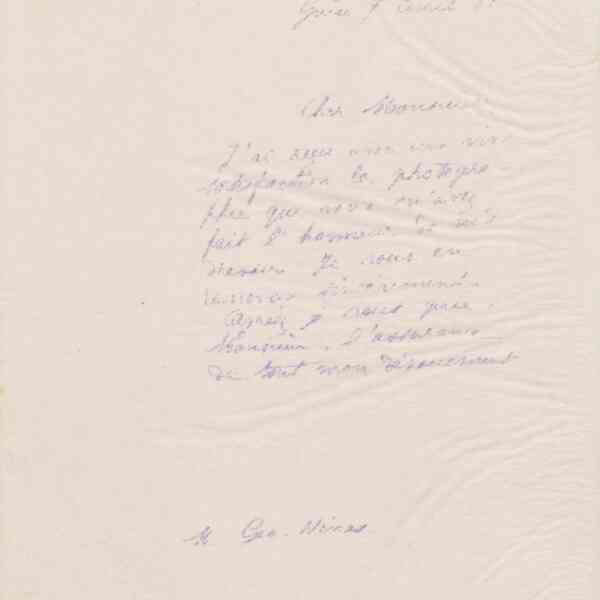 Guise 7
Cher Monsieur,
J'ai reçu avec une vive
satisfaction la photogra-
phie que vous m'avez
fait l'honneur de
Je vous en
remercie sincèrement.
Agréez, je vous prie,
Monsieur, l'assurance
de tout mon dévouement
M. Geo. Nimes